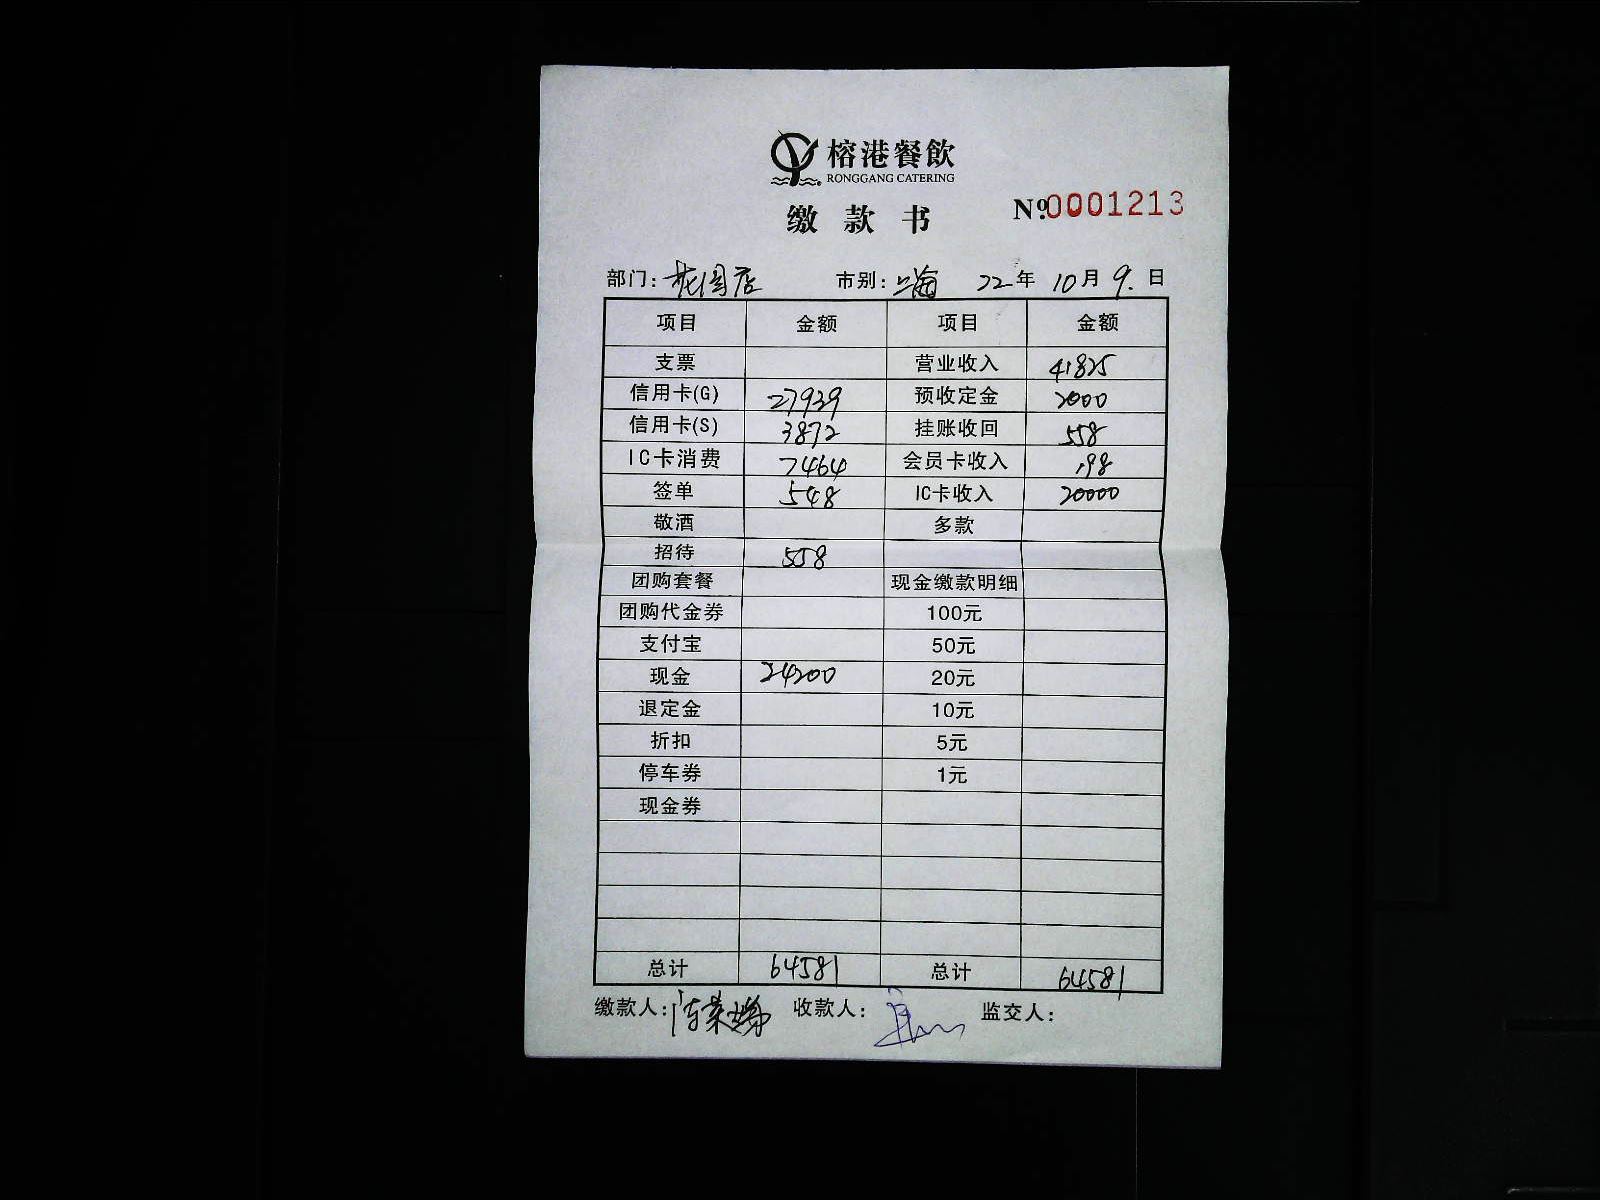 榕港餐飲
RONGGANG CATERING
缴款书
Nº0001213
部门：花园店 市别：上海 22年10月9日
项目 金额 项目 金额
支票 营业收入 41825
信用卡(G) 27939 预收定金 2000
信用卡(S) 3872 挂账收回 558
IC卡消费 7464 会员卡收入 198
签单 548 IC卡收入 20000
敬酒 多款
招待 558
团购套餐 现金缴款明细
团购代金券 100元
支付宝 50元
现金 24200 20元
退定金 10元
折扣 5元
停车券 1元
现金券
总计 64581 总计 64581
缴款人： 收款人： 监交人：